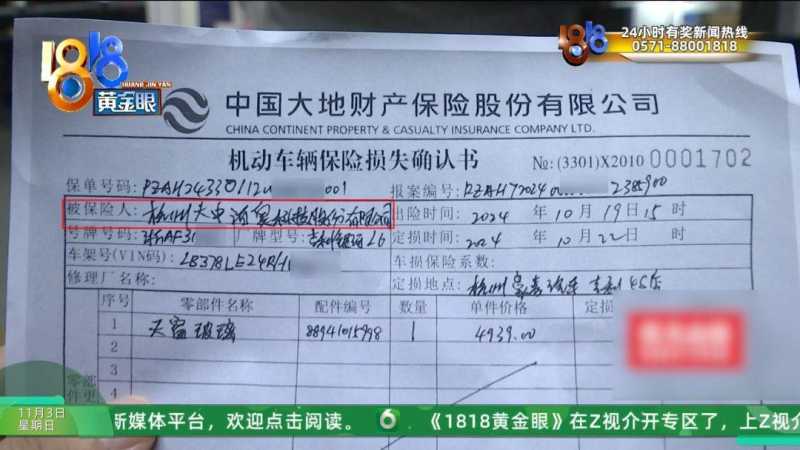 1818
HUANG JIN YAN
黄金眼
24小时有奖新闻热线
0571-88001818
中国大地财产保险股份有限公司
CHINA CONTINENT PROPERTY & CASUALTY INSURANCE COMPANY LTD.
机动车辆保险损失确认书
No: (3301)X2010 0001702
保单号码: PZAH24330112 001
报案编号: PZAH72024 2385900
被保险人: 杭州 科技股份有限公司
出险时间: 2024 年 10 月 19日 15 时
号牌号码: 浙AF31
厂牌型号: 吉利银河L6
定损时间: 2024 年 10 月 22日 时
车架号(VIN码): LB378LE24R
车损保险系数:
修理厂名称:
定损地点: 杭州 吉利4S店
序号 零部件名称 配件编号 数量 单件价格 定损
1 天窗玻璃 88941015998 1 4939.00
2
3
4
零部件更
11月3日
星期日
新媒体平台，欢迎点击阅读。 《1818黄金眼》在Z视介开专区了，上Z视介